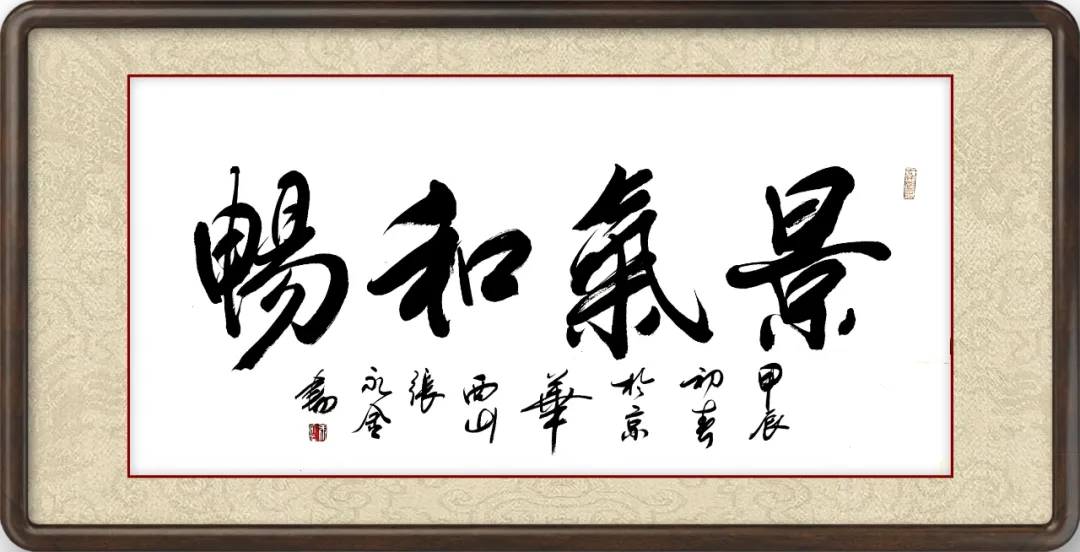 景氣和暢
甲辰初春於京華西山張永金書